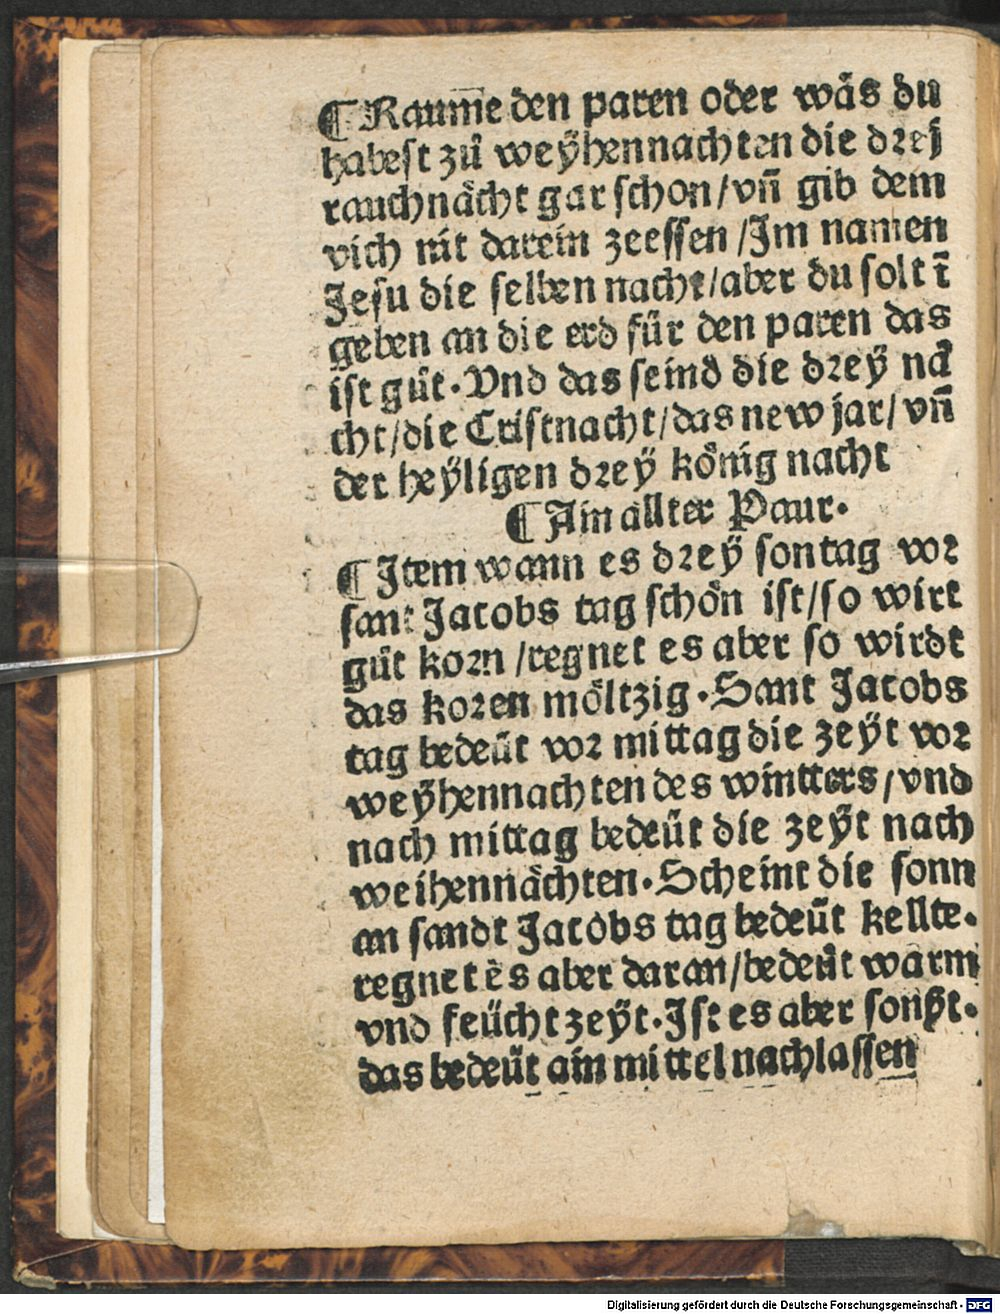 ¶ Raum̅e den paren oder wäs du
habest zů weÿhennachten die drej
rauchnächt gar schon/vn̅ gib dem
vich nit darein zeessen /Im namen
Jesu die selben nacht/aber du solt i̅
geben an die erd für den paren das
ist gůt. Vnd das seind die dreÿ nä
cht/die Cristnacht/das new jar/ vn̅
der heÿligen dreÿ könig nacht
¶ Ain allter Paur.
¶ Item wann es dreÿ sontag vor
sant Jacobs tag schön ist/so wirt
gůt korn /regnet es aber so wirdt
das koren möltzig. Sant Jacobs
tag bedeüt vor mittag die zeÿt vor
weÿhennachten des wintters/vnd
nach mittag bedeüt die zeÿt nach
weihennächten. Scheint die sonn
an sandt Jacobs tag bedeüt kellte.
regnet es aber daran/bedeüt warm
vnd feücht zeÿt. Ist es aber sonßt.
das bedeüt ain mittel nachlassen
Digitalisierung gefördert durch die Deutsche Forschungsgemeinschaft - DFG